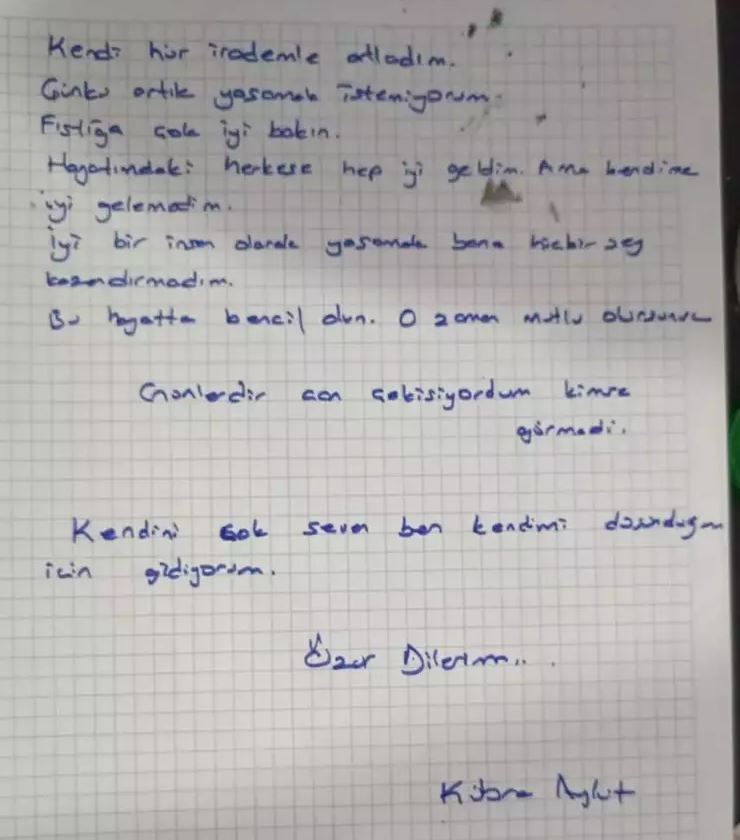 Kendi hür irademle atladım.
Çünkü artık yaşamak istemiyorum.
Fıstığa çok iyi bakın.
Hayatımdaki herkese hep iyi geldim. Ama kendime
iyi gelemedim.
İyi bir insan olarak yaşamak bana hiçbir şey
kazandırmadım.
Bu hayatta bencil olun. O zaman mutlu olursunuz
Günlerdir can çekişiyordum kimse
görmedi.
Kendini çok seven ben kendimi düşündüğüm
için gidiyorum.
Özür Dilerim...
Kübra Aykut